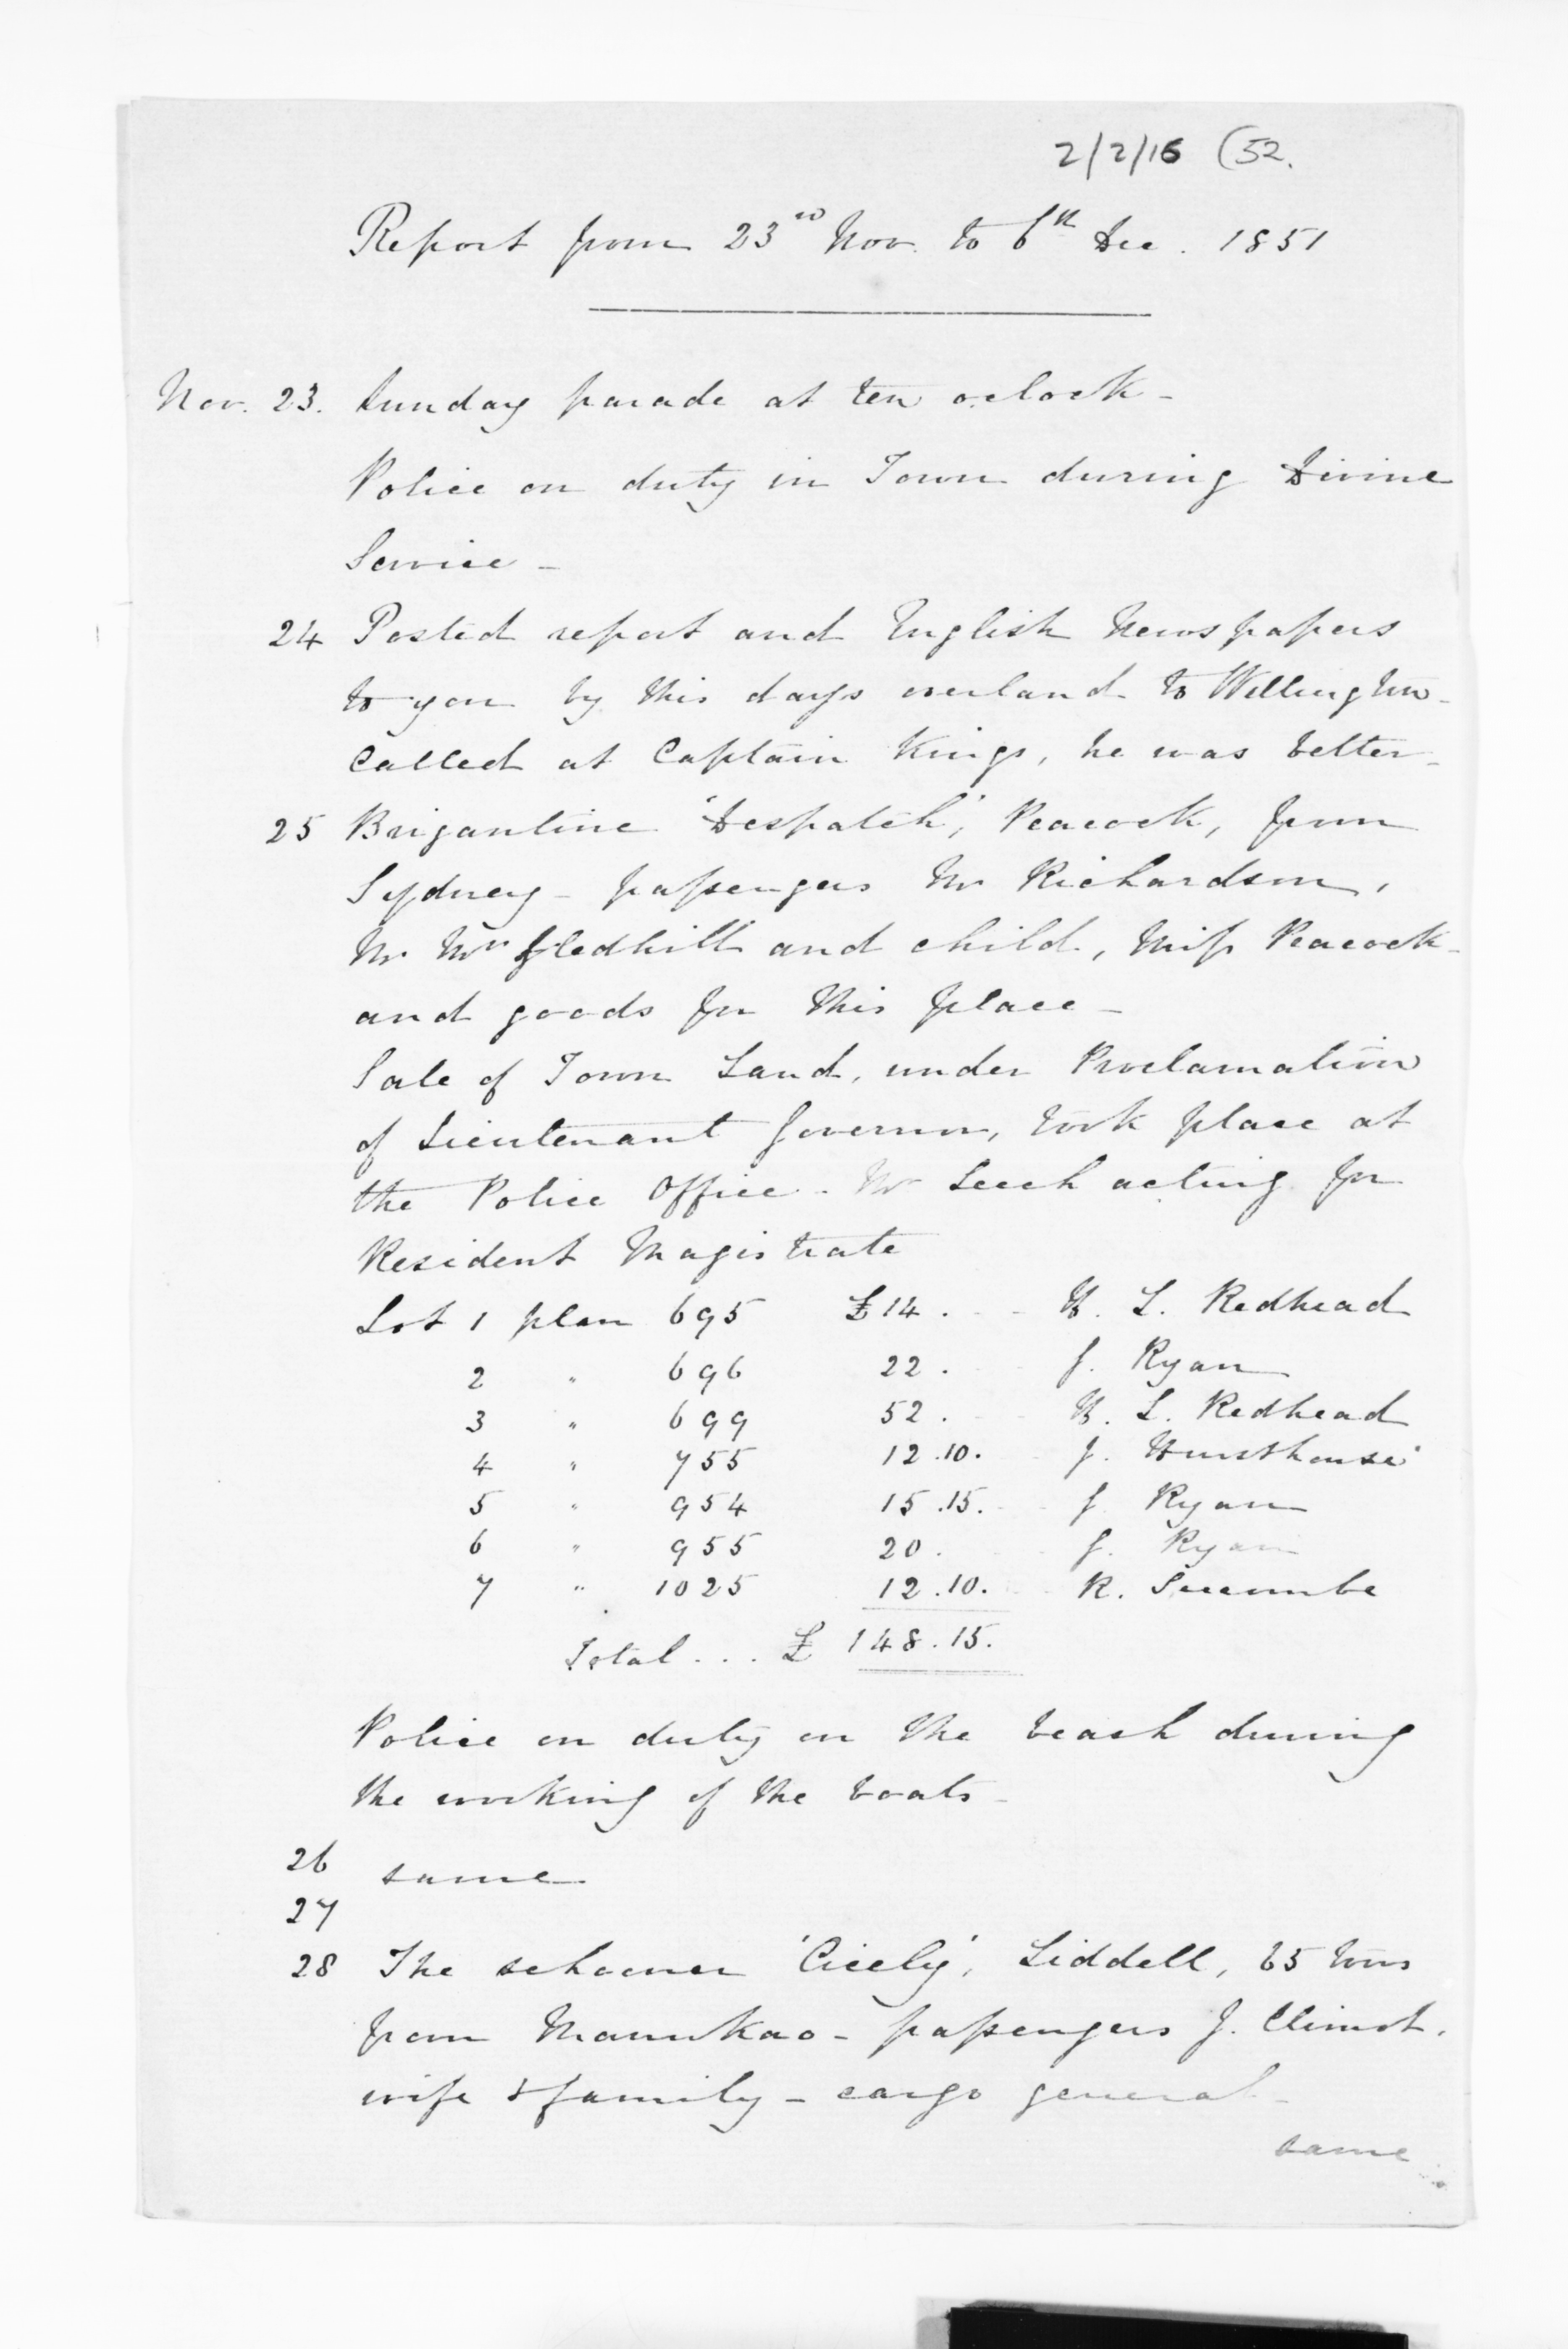 2/2/16 (52.
Report from 23rd Nov. to 6th Dec. 1851
Nov. 23. Sunday parade at ten oclock -
Police on duty in Town during Divine
Service -
24 Posted report and English Newspapers
to you by this days overland to Wellington -
Called at Captain Kings, he was better -
25 Brigantine 'Despatch', Peacock, from
Sydney - passengers Mr Richardson,
Mr Mrs Gledhill and child, Miss Peacock -
and goods for this place -
Sale of Town Land, under Proclamation
of Lieutenant Governor, took place at
the Police Office - Mr Leech acting for
Resident Magistrate
Lot 1 plan 695 £14 . - - L. Redhead
2 " 696 22 . - J. Ryan
3 " 699 52 . - L. Redhead
4 " 755 12.10. - J. Hursthouse
5 " 954 15.15. - J. Ryan
6 " 955 20 . - J. Ryan
7 " 1025 12.10. - R.
Total ... £ 148.15.
Police on duty on the beach during
the working of the boats -
26 same
27
28 The schooner 'Cicely', Liddell, 65 tons
from Manukao - passengers J.
wife & family - cargo general -
same